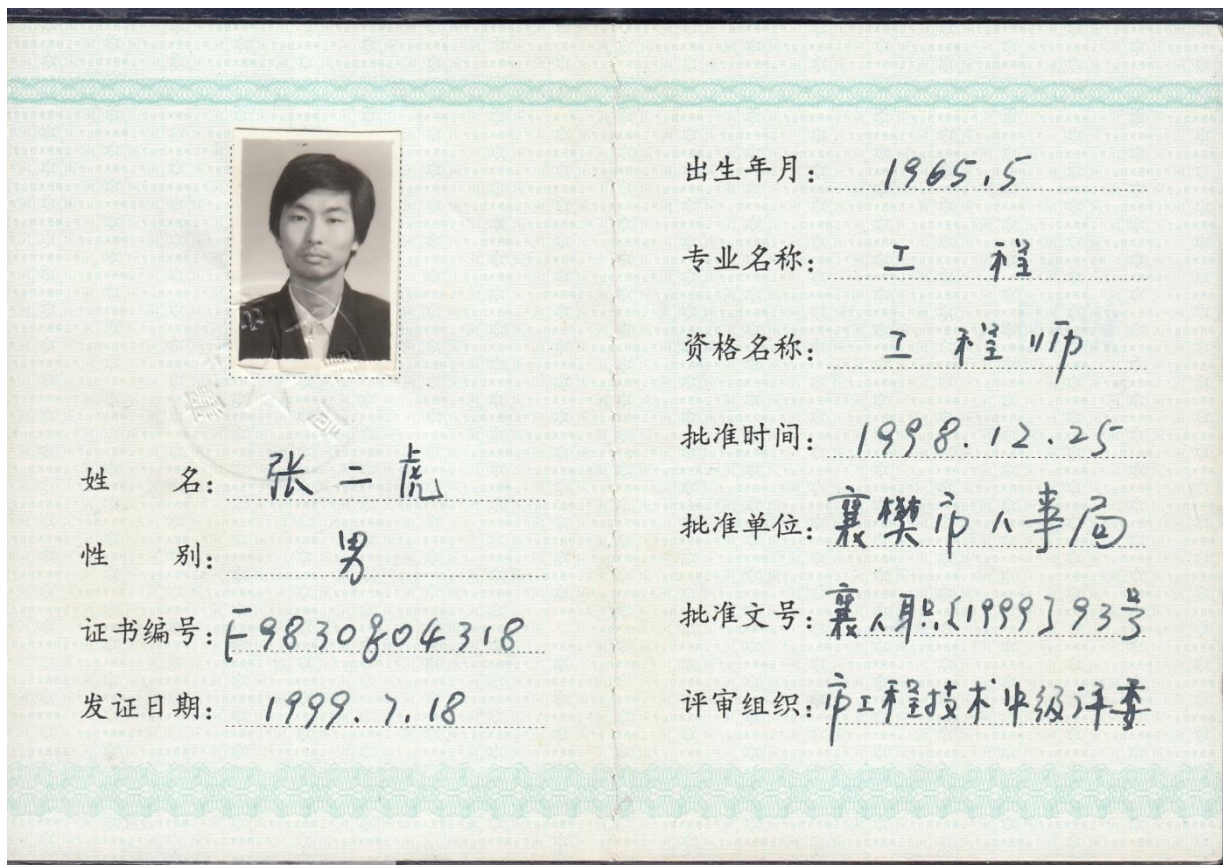 姓 名: 张二虎
性 别: 男
证书编号: F9830804318
发证日期: 1999.7.18
出生年月: 1965.5
专业名称: 工 程
资格名称: 工 程 师
批准时间: 1998.12.25
批准单位: 襄樊市人事局
批准文号: 襄人职[1999]93号
评审组织: 市工程技术中级评委